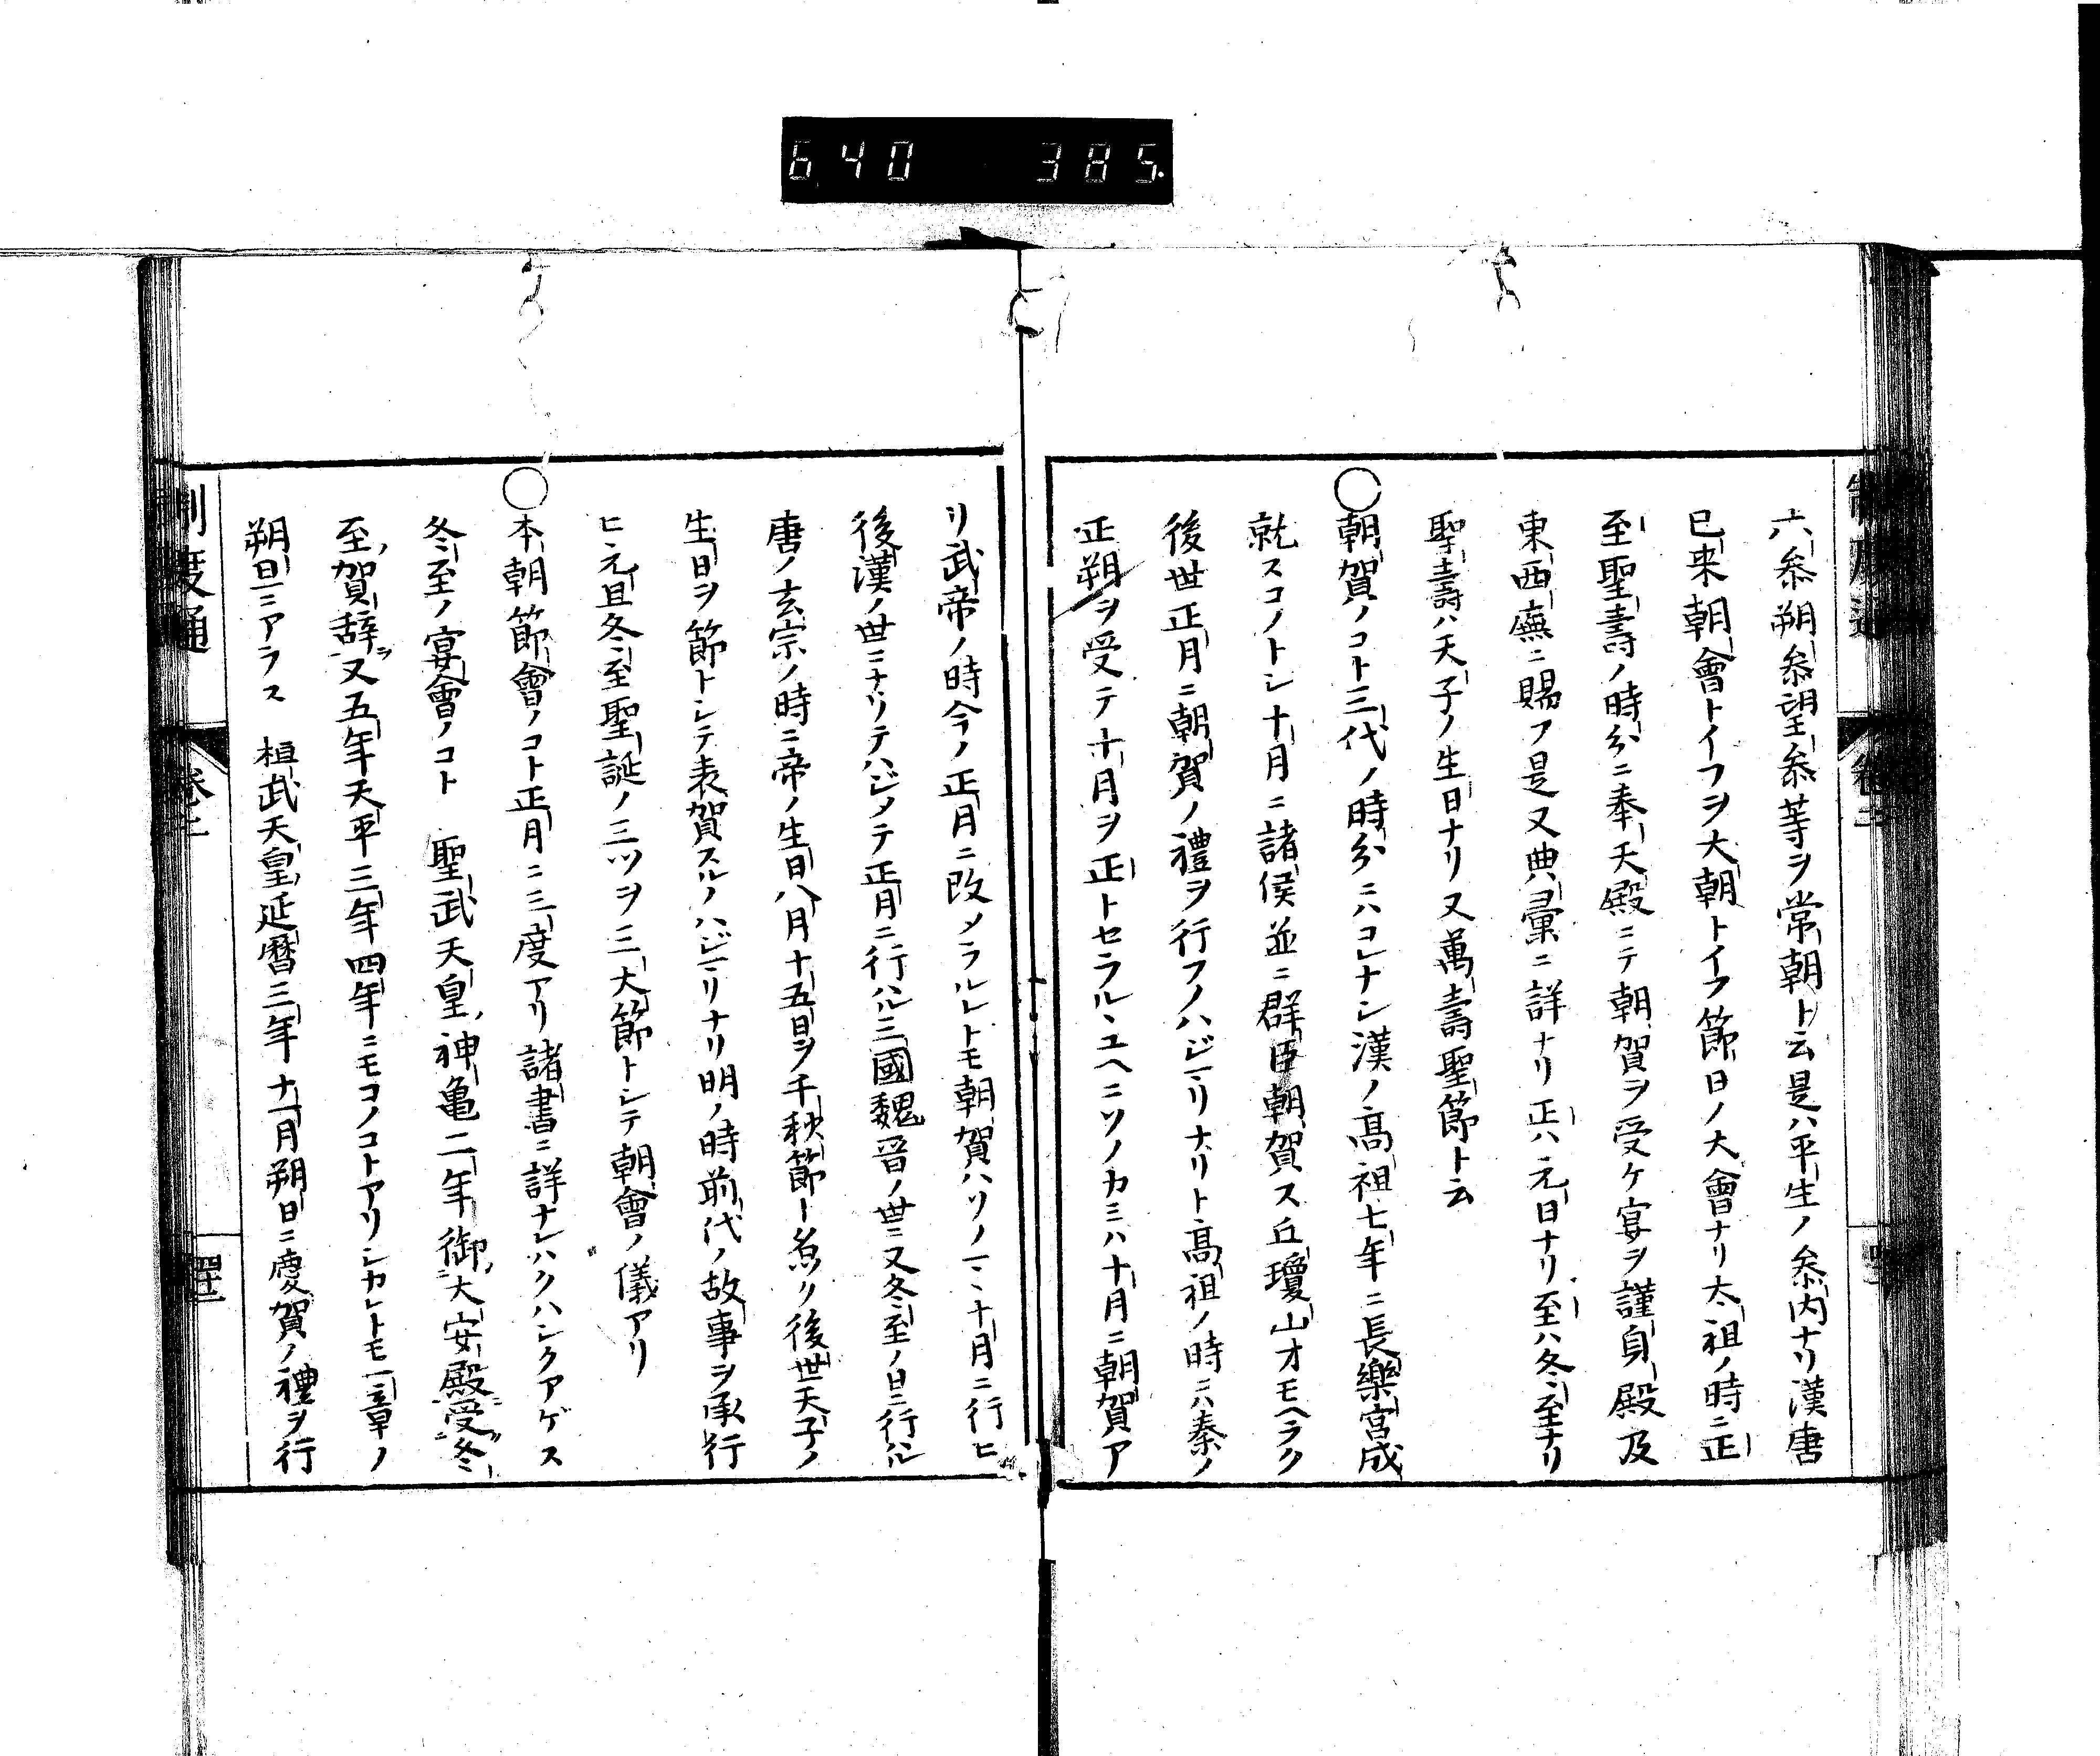 640 385.
六参朔参望参等ヲ常朝ト云是ハ平生ノ参内ナリ漢唐
已来朝會トイフヲ大朝トイフ節日ノ大會ナリ太祖ノ時ニ正
至聖壽ノ時分ニ奉天殿ニテ朝賀ヲ受ケ宴ヲ謹身殿及
東西廡ニ賜フ是又典彙ニ詳ナリ正ハ元日ナリ至ハ冬至ナリ
聖壽ハ天子ノ生日ナリ又萬壽聖節ト云
○朝賀ノコト三代ノ時分ニハコレナシ漢ノ髙祖七年ニ長樂宮成
就スコノトシ十月ニ諸侯並ニ群臣朝賀ス丘瓊山オモヘラク
後世正月ニ朝賀ノ禮ヲ行フノハジマリナリト髙祖ノ時ニハ秦ノ
正朔ヲ受テ十月ヲ正トセラルヽユヘニソノカミハ十月ニ朝賀ア
リ武帝ノ時今ノ正月ニ改メラルレトモ朝賀ハソノマヽ十月ニ行ヒ
後漢ノ世ニナリテハジメテ正月ニ行ハル三國魏晋ノ世ニ又冬至ノ日ニ行ハル
唐ノ玄宗ノ時ニ帝ノ生日八月十五日ヲ千秋節ト名ク後世天子ノ
生日ヲ節トシテ表賀スルノハジマリナリ明ノ時前代ノ故事ヲ承行
ヒ元旦冬至聖誕ノ三ツヲ三大節トシテ朝會ノ儀アリ
○本朝節會ノコト正月ニ三度アリ諸書ニ詳ナレハクハシクアゲス
冬至ノ宴會ノコト 聖武天皇神亀二年御大安殿受冬
至賀辞ヲ又五年天平三年四年ニモコノコトアリシカレトモ一章ノ
朔旦ニアラス 桓武天皇延暦三年十一月朔日ニ慶賀ノ禮ヲ行
制度通 巻二